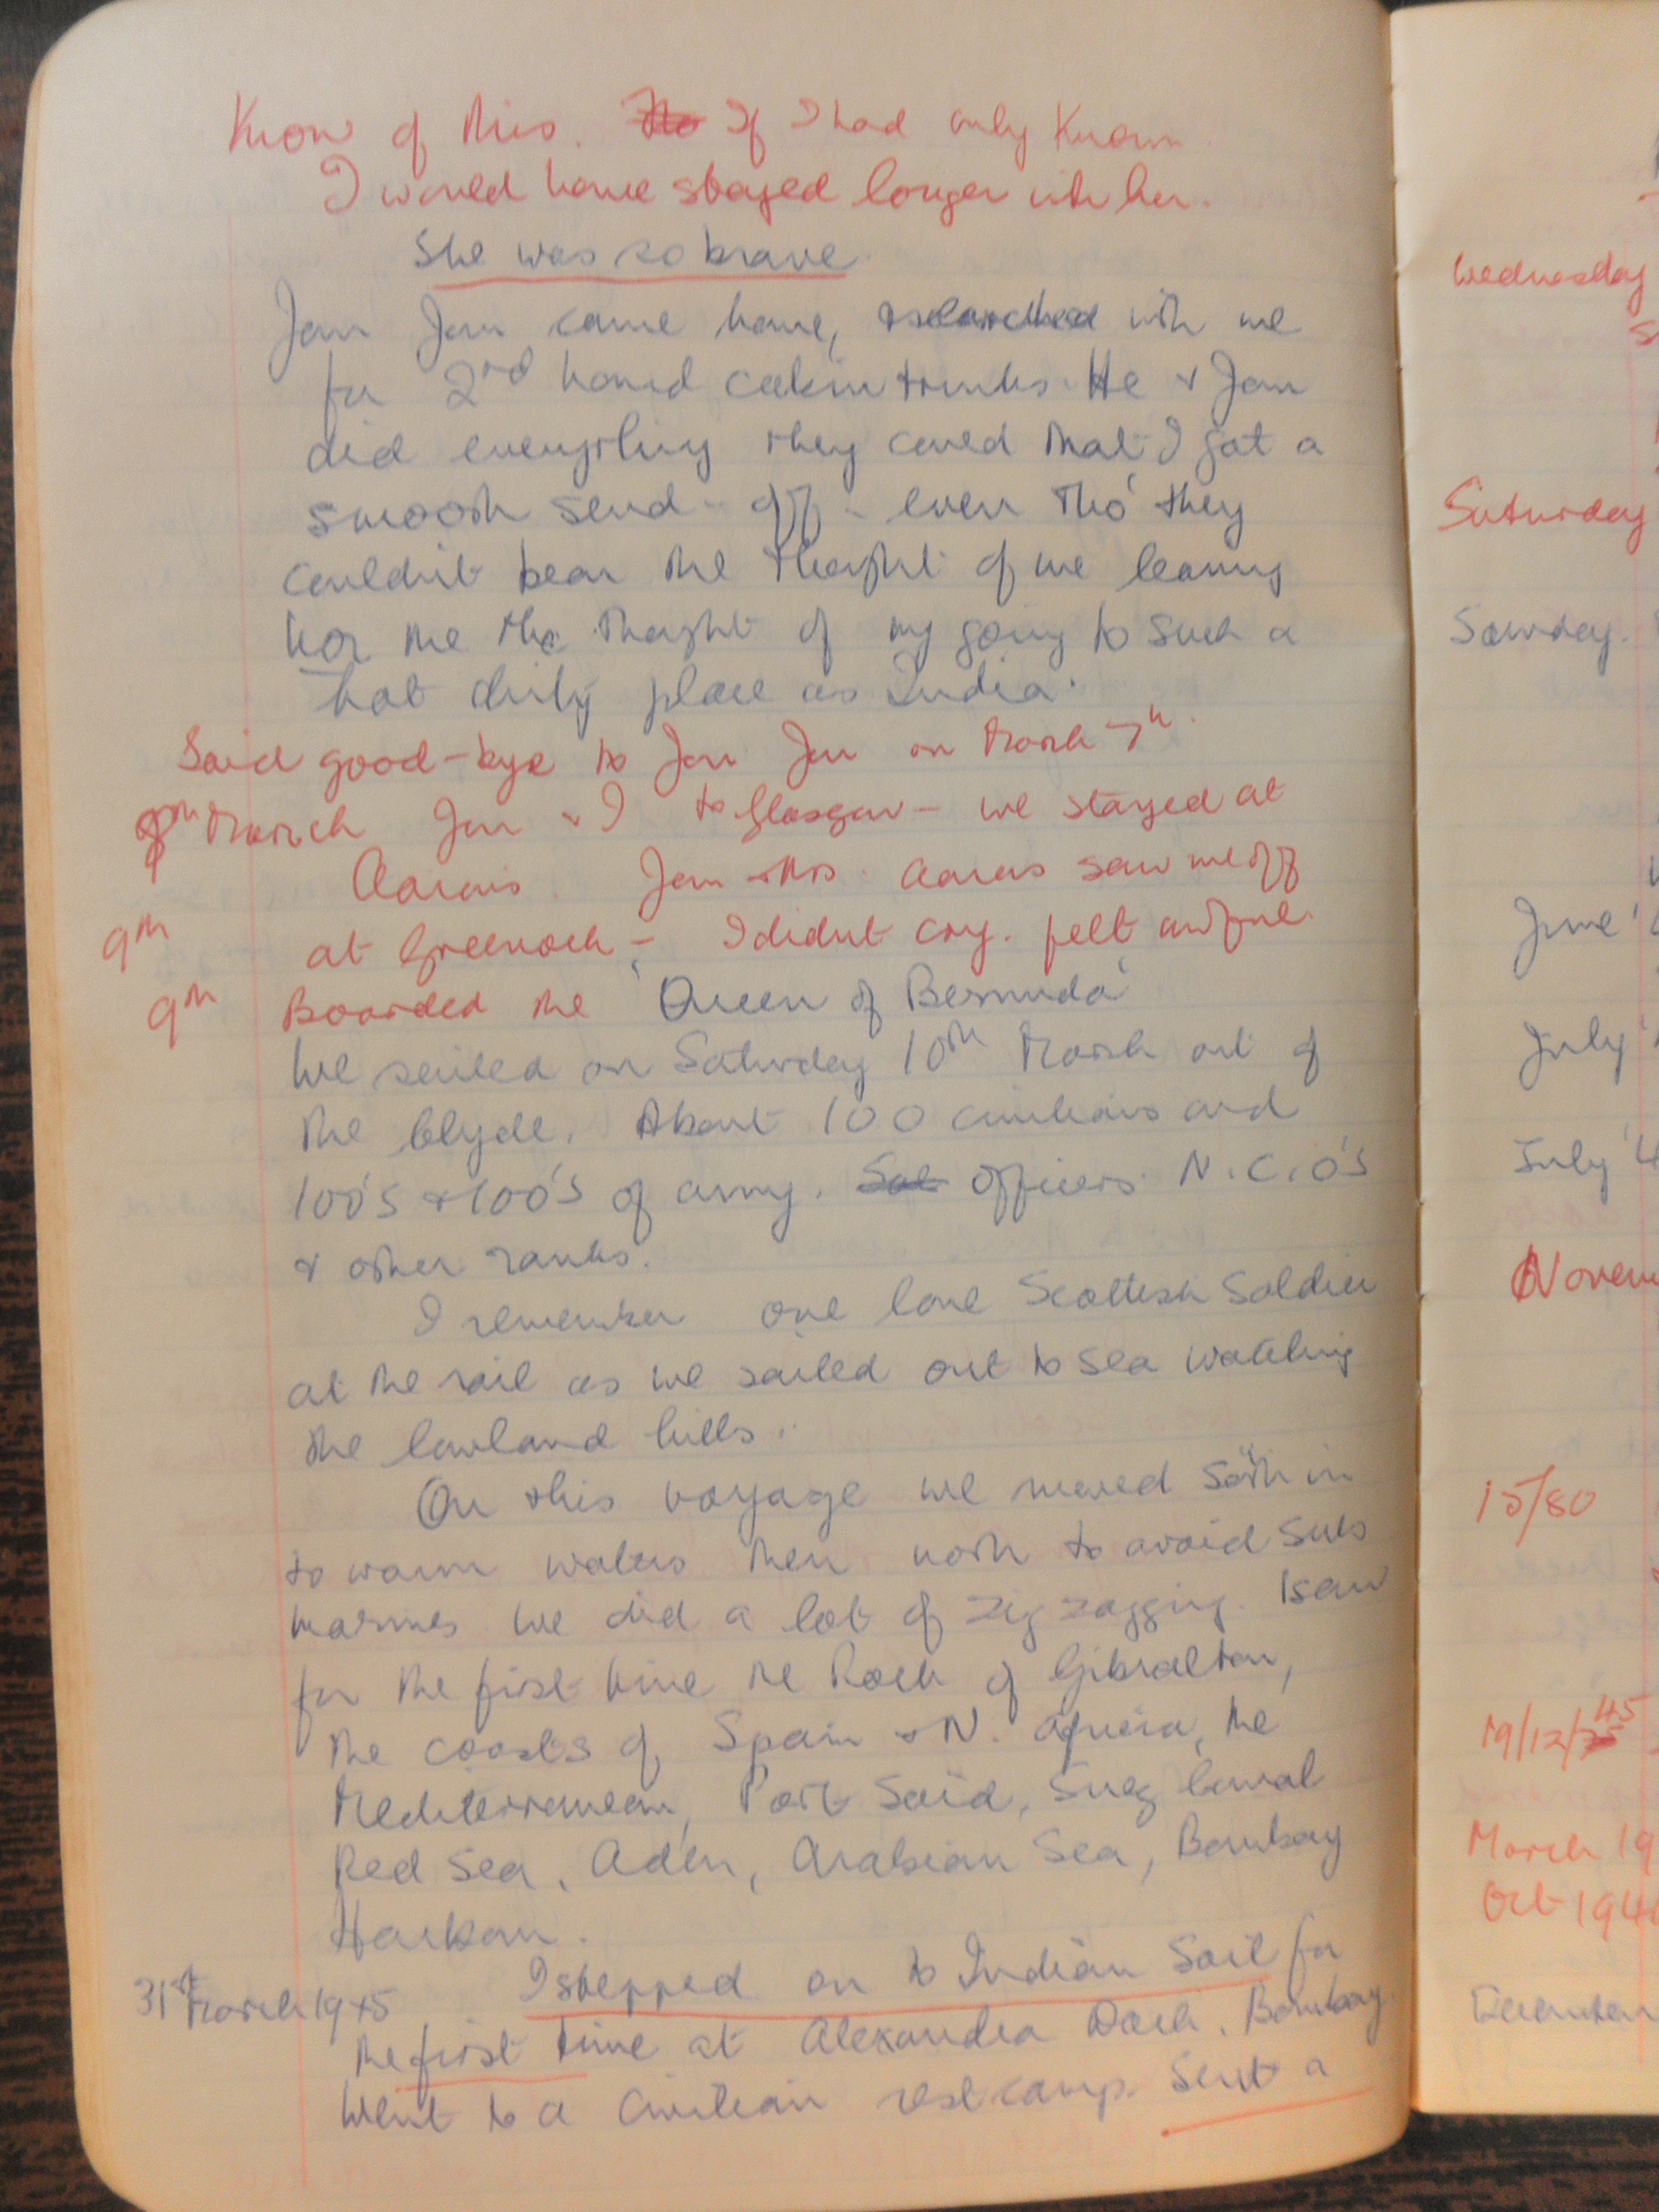 Know of this. If I had only Known.
I would have stayed longer with her.
She was so brave.
Jan Jan came home, & searched with me
for 2nd hand cabin trunks. He & Jan
did everything they could that I got a
smooth send-off - even tho' they
couldn't bear the thought of me leaving
nor the thought of my going to such a
hot dirty place as India.
Said good-bye to Jan Jan on March 7th.
March Jan & I to Glasgow - we stayed at
Jan & Mrs. saw me off
9th at Greenock - I didn't cry. felt awful.
9th Boarded the 'Queen of Bermuda'
We sailed on Saturday 10th March out of
the Clyde. About 100 civilians and
100's & 100's of army. Officers N.C.O's
& other ranks.
I remember one lone Scottish Soldier
at the rail as we sailed out to sea watching
the lowland hills.
On this voyage we moved South in
to warm waters then north to avoid Sub
marines. We did a lot of zig zagging. I saw
for the first time the Rock of Gibraltar,
the coasts of Spain & N. Africa, the
Mediterranean, Port Said, Suez Canal
Red Sea, Aden, Arabian Sea, Bombay
Harbour.
31st March 1945 I stepped on to Indian Soil for
the first time at Alexandra Dock, Bombay.
Went to a Civilian rest camp. Sent a
Wednesday
Saturday
June
July
July '4
15/80
19/12/45
March 19
Oct 194